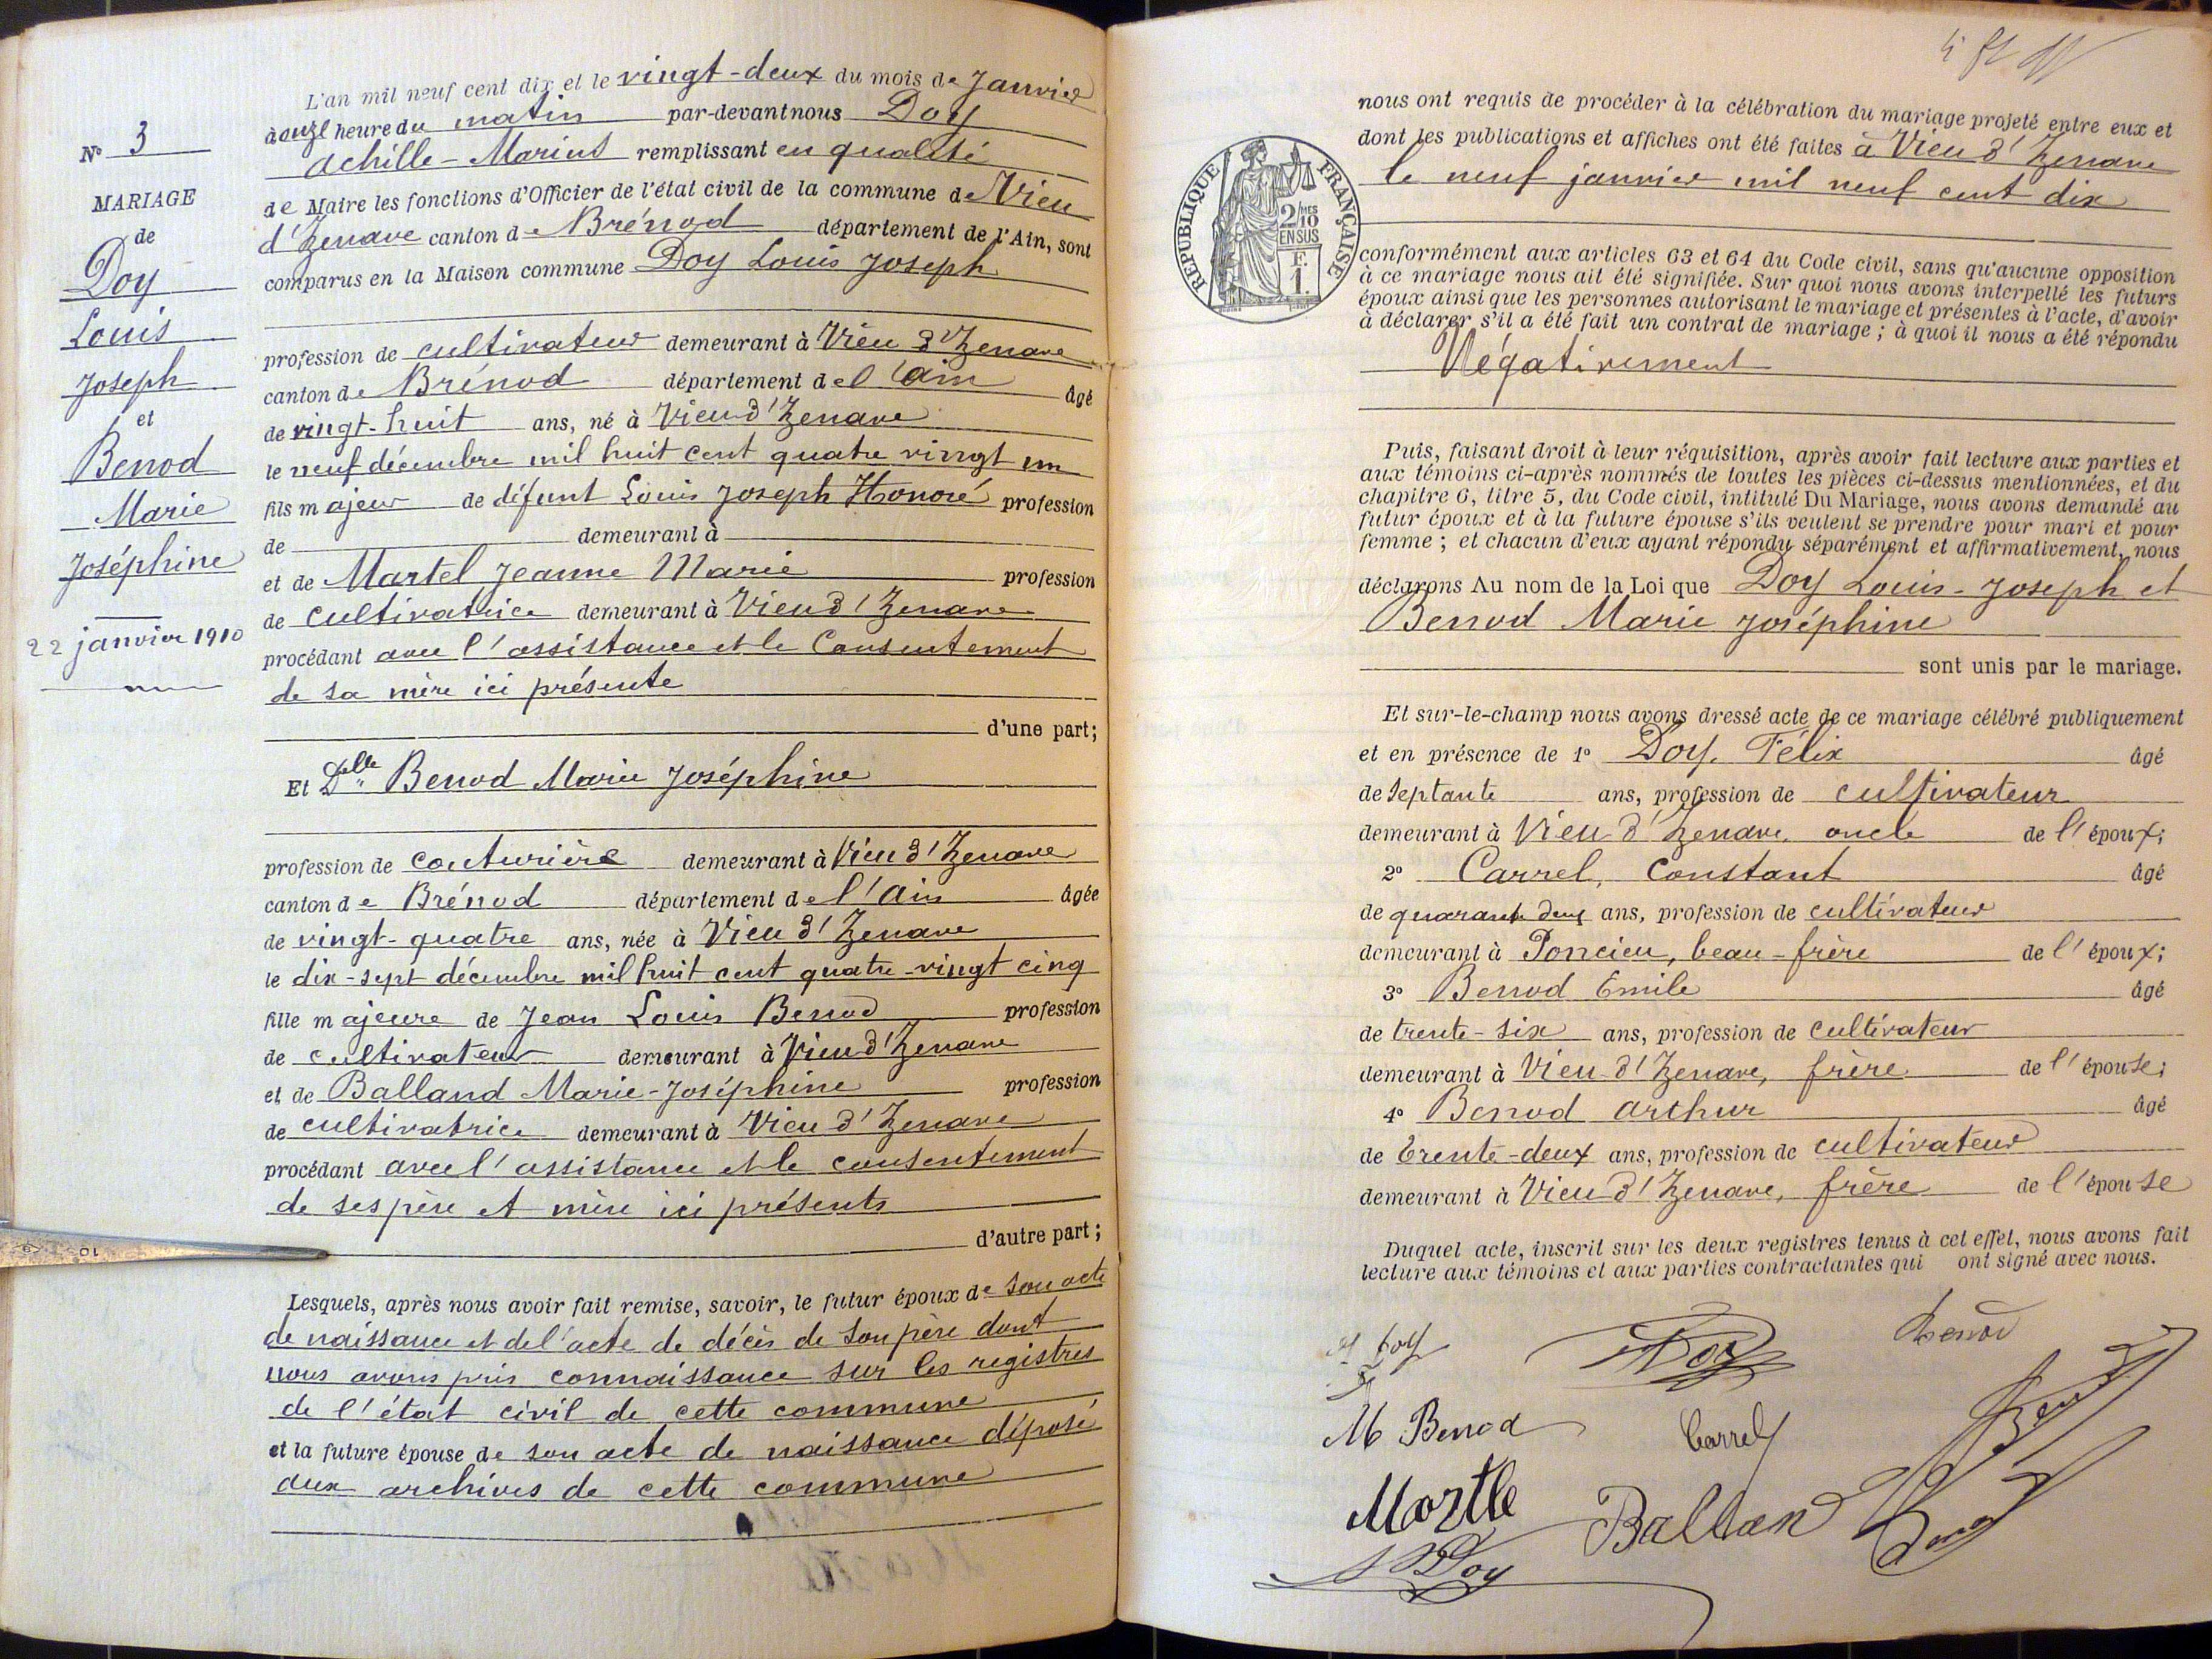 N° 3
MARIAGE
de
Doy
Louis
Joseph
et
Benod
Marie
Joséphine
22 janvier 1910
L'an mil neuf cent dix et le vingt-deux du mois de Janvier
à onze heure du matin par-devant nous Doy
Achille-Marius remplissant en qualité
de Maire les fonctions d'Officier de l'état civil de la commune de Vieu
d'Izenave canton de Brénod département de l'Ain, sont
comparus en la Maison commune Doy Louis Joseph
profession de cultivateur demeurant à Vieu d'Izenave
canton de Brénod département de l'Ain âgé
de vingt-huit ans, né à Vieu d'Izenave
le neuf décembre mil huit cent quatre vingt un
fils majeur de défunt Louis Joseph Honoré profession
de demeurant à
et de Martel Jeanne Marie profession
de cultivatrice demeurant à Vieu d'Izenave
procédant avec l'assistance et le Consentement
de sa mère ici présente
d'une part;
Et Delle Benod Marie Joséphine
profession de couturière demeurant à Vieu d'Izenave
canton de Brénod département de l'Ain âgée
de vingt-quatre ans, née à Vieu d'Izenave
le dix-sept décembre mil huit cent quatre-vingt cinq
fille majeure de Jean Louis Benod profession
de cultivateur demeurant à Vieu d'Izenave
et de Balland Marie-Joséphine profession
de cultivatrice demeurant à Vieu d'Izenave
procédant avec l'assistance et le consentement
de ses père et mère ici présents
d'autre part;
Lesquels, après nous avoir fait remise, savoir, le futur époux de son acte
de naissance et de l'acte de décès de son père dont
nous avons pris connaissance sur les registres
de l'état civil de cette commune
et la future épouse de son acte de naissance déposé
aux archives de cette commune
RÉPUBLIQUE FRANÇAISE
2/10 MES
EN SUS
F.
1.
nous ont requis de procéder à la célébration du mariage projeté entre eux et
dont les publications et affiches ont été faites à Vieu d'Izenave
le neuf janvier mil neuf cent dix
conformément aux articles 63 et 64 du Code civil, sans qu'aucune opposition
à ce mariage nous ait été signifiée. Sur quoi nous avons interpellé les futurs
époux ainsi que les personnes autorisant le mariage et présentes à l'acte, d'avoir
à déclarer s'il a été fait un contrat de mariage; à quoi il nous a été répondu
Négativement
Puis, faisant droit à leur réquisition, après avoir fait lecture aux parties et
aux témoins ci-après nommés de toutes les pièces ci-dessus mentionnées, et du
chapitre 6, titre 5, du Code civil, intitulé Du Mariage, nous avons demandé au
futur époux et à la future épouse s'ils veulent se prendre pour mari et pour
femme; et chacun d'eux ayant répondu séparément et affirmativement, nous
déclarons Au nom de la Loi que Doy Louis-Joseph et
Benod Marie Joséphine
sont unis par le mariage.
Et sur-le-champ nous avons dressé acte de ce mariage célébré publiquement
et en présence de 1° Doy, Félix âgé
de septante ans, profession de cultivateur
demeurant à Vieu d'Izenave, oncle de l'époux;
2° Carrel, Constant âgé
de quarante deux ans, profession de cultivateur
demeurant à Poncieu, beau-frère de l'époux;
3° Benod Emile âgé
de trente-six ans, profession de cultivateur
demeurant à Vieu d'Izenave, frère de l'épouse;
4° Benod Arthur âgé
de trente-deux ans, profession de cultivateur
demeurant à Vieu d'Izenave, frère de l'épouse
Duquel acte, inscrit sur les deux registres tenus à cet effet, nous avons fait
lecture aux témoins et aux parties contractantes qui ont signé avec nous.
Doy Doy Benod
M Benod Carrel
Martle Ballan
Doy